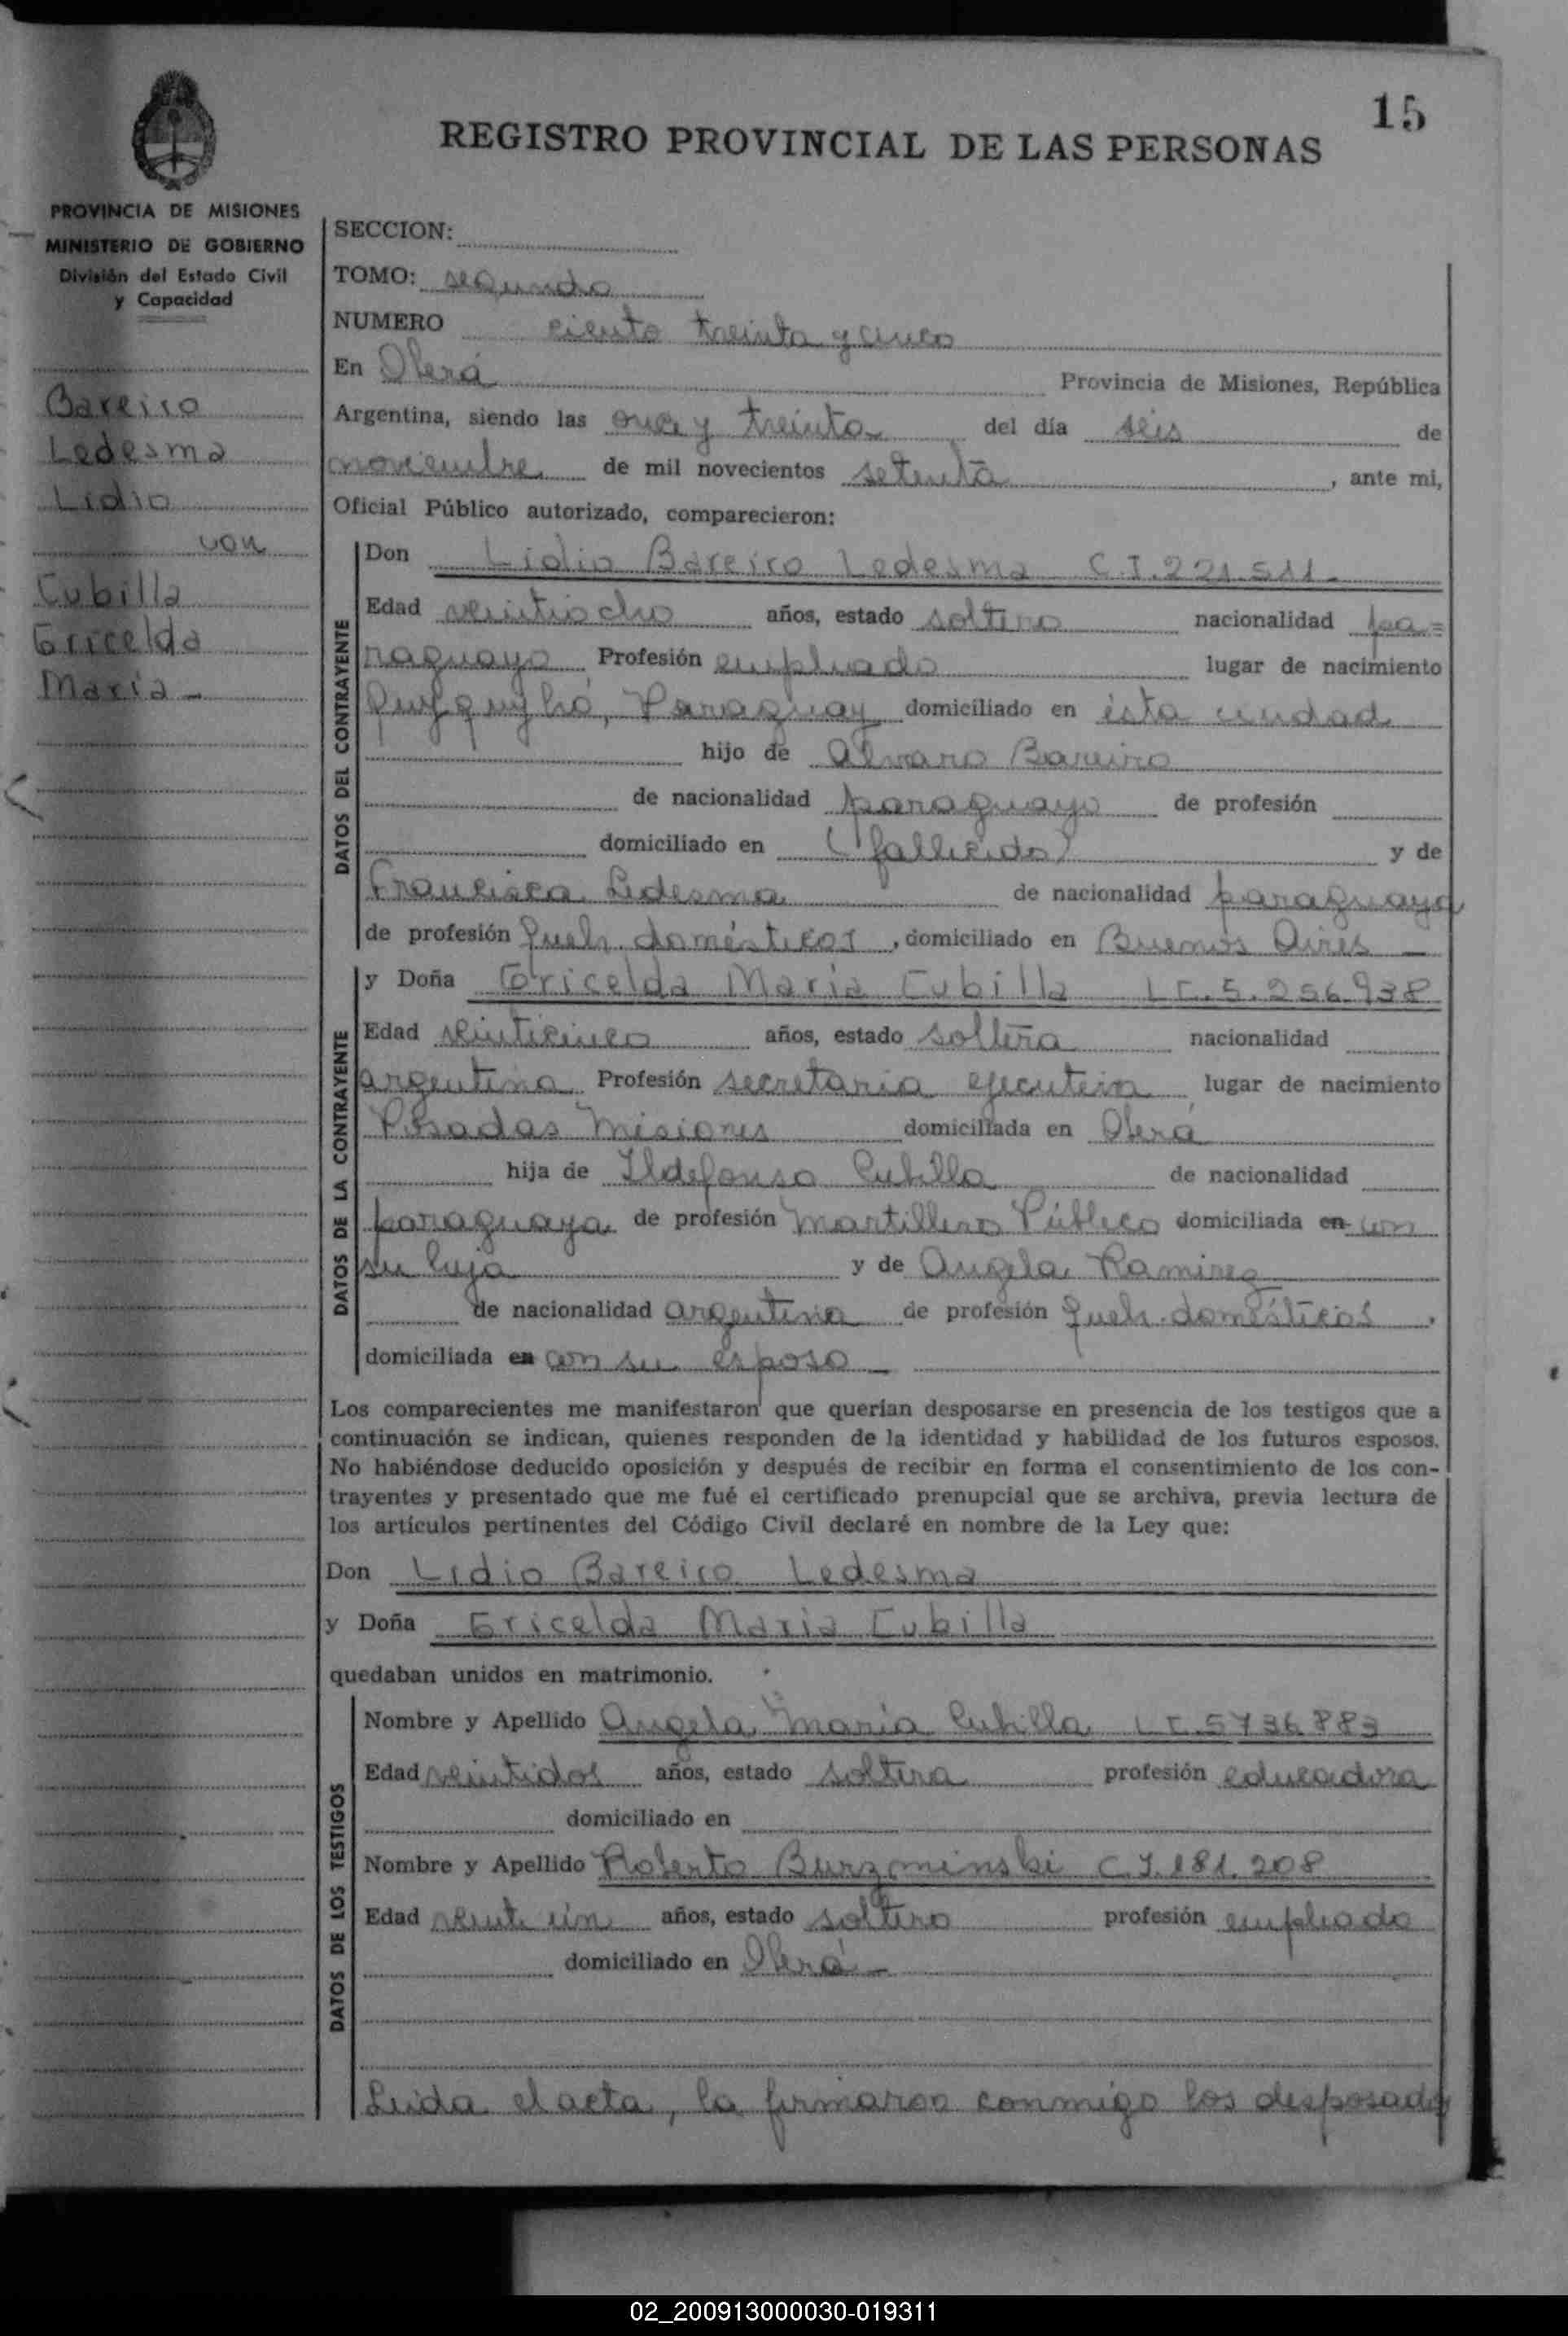 15
REGISTRO PROVINCIAL DE LAS PERSONAS
PROVINCIA DE MISIONES
MINISTERIO DE GOBIERNO
División del Estado Civil
y Capacidad
Bareiro
Ledesma
Lidio
con
Cubilla
Gricelda
María -
SECCION:
TOMO: segundo
NUMERO ciento treinta y cinco
En Oberá Provincia de Misiones, República
Argentina, siendo las once y treinta del día seis de
noviembre de mil novecientos setenta, ante mi,
Oficial Público autorizado, comparecieron:
DATOS DEL CONTRAYENTE
Don Lidio Bareiro Ledesma C.I. 221.511.
Edad veintiocho años, estado soltero nacionalidad pa=
raguayo Profesión empleado lugar de nacimiento
Paraguay domiciliado en ésta ciudad
hijo de Alvaro Bareiro
de nacionalidad paraguayo de profesión
domiciliado en (fallecido) y de
Francisca Ledesma de nacionalidad paraguaya
de profesión queh. domésticos, domiciliado en Buenos Aires -
DATOS DE LA CONTRAYENTE
y Doña Gricelda María Cubilla LC. 5.256.938
Edad veinticinco años, estado soltera nacionalidad
argentina Profesión secretaria ejecutiva lugar de nacimiento
Posadas Misiones domiciliada en Oberá
hija de Ildefonso Cubilla de nacionalidad
paraguaya de profesión Martillero Público domiciliada en con
su hija y de Angela Ramirez
de nacionalidad argentina de profesión queh. domésticos,
domiciliada en con su esposo -
Los comparecientes me manifestaron que querían desposarse en presencia de los testigos que a
continuación se indican, quienes responden de la identidad y habilidad de los futuros esposos.
No habiéndose deducido oposición y después de recibir en forma el consentimiento de los con-
trayentes y presentado que me fué el certificado prenupcial que se archiva, previa lectura de
los artículos pertinentes del Código Civil declaré en nombre de la Ley que:
Don Lidio Bareiro Ledesma
y Doña Gricelda María Cubilla
quedaban unidos en matrimonio.
DATOS DE LOS TESTIGOS
Nombre y Apellido Angela María Cubilla LC. 5736883
Edad veintidos años, estado soltera profesión educadora
domiciliado en
Nombre y Apellido Roberto Burzminski C.I. 181.208
Edad veinte ún años, estado soltero profesión empleado
domiciliado en Oberá -
Leida el acta, la firmaron conmigo los desposados
02_200913000030-019311